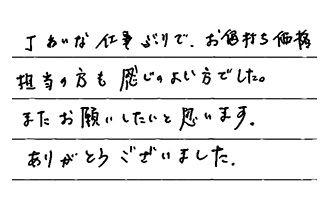 丁ねいな仕事ぶりで、お値打ち価格
担当の方も感じのよい方でした。
またお願いしたいと思います。
ありがとうございました。